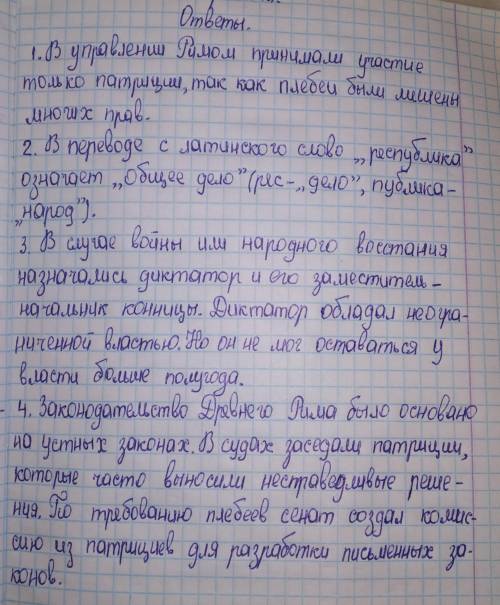 Ответы.
1. В управлении Римом принимали участие
только патриции, так как плебеи были лишены
многих прав.
2. В переводе с латинского слово „республика”
означает „Общее дело” (рес-„дело”, публика-
„народ”).
3. В случае войны или народного восстания
назначались диктатор и его заместитель-
начальник конницы. Диктатор обладал неогра-
ниченной властью. Но он не мог оставаться у
власти больше полугода.
4. Законодательство Древнего Рима было основано
на устных законах. В судах заседали патриции,
которые часто выносили несправедливые реше-
ния. По требованию плебеев сенат создал комис-
сию из патрициев для разработки письменных за-
конов.